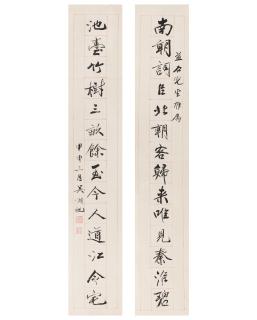 先生雅屬
南朝詞臣北朝客歸来唯見秦淮碧
池臺竹樹三畝餘至今人道江令宅
甲申三月吳湖帆